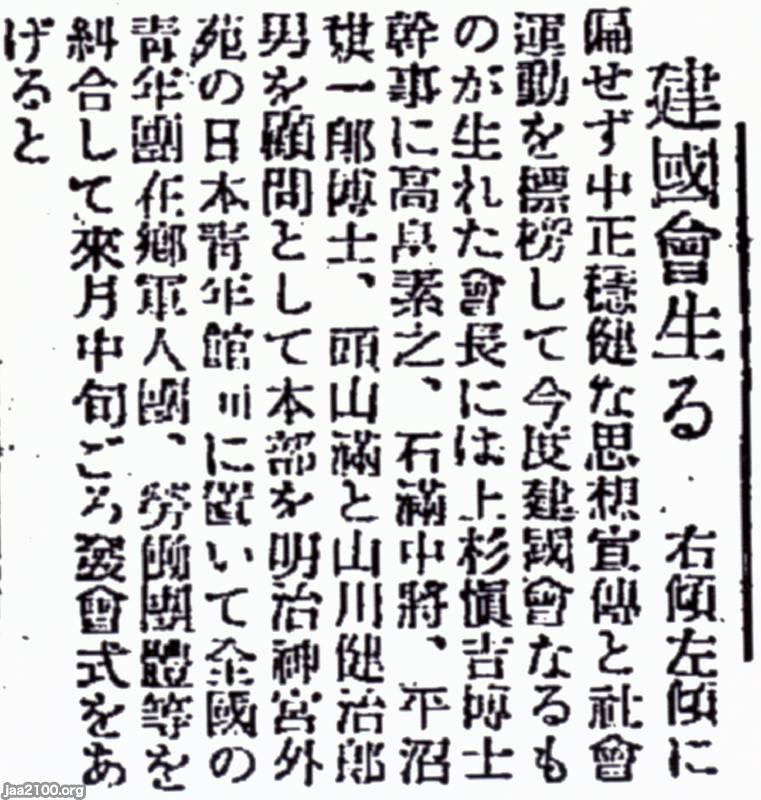 建國會生る　右傾左傾に
偏せず中正穩健な思想宣傳と社會
運動を標榜して今度建國會なるも
のが生れた會長には上杉愼吉博士
幹事に高畠素之、石滿中將、平沼
騏一郎博士、頭山滿と山川健治郎
男を顧問として本部を明治神宮外
苑の日本靑年館内に置いて全國の
靑年團在鄕軍人團、勞働團體等を
糾合して來月中旬ごろ發會式をあ
げると
jaa2100.org